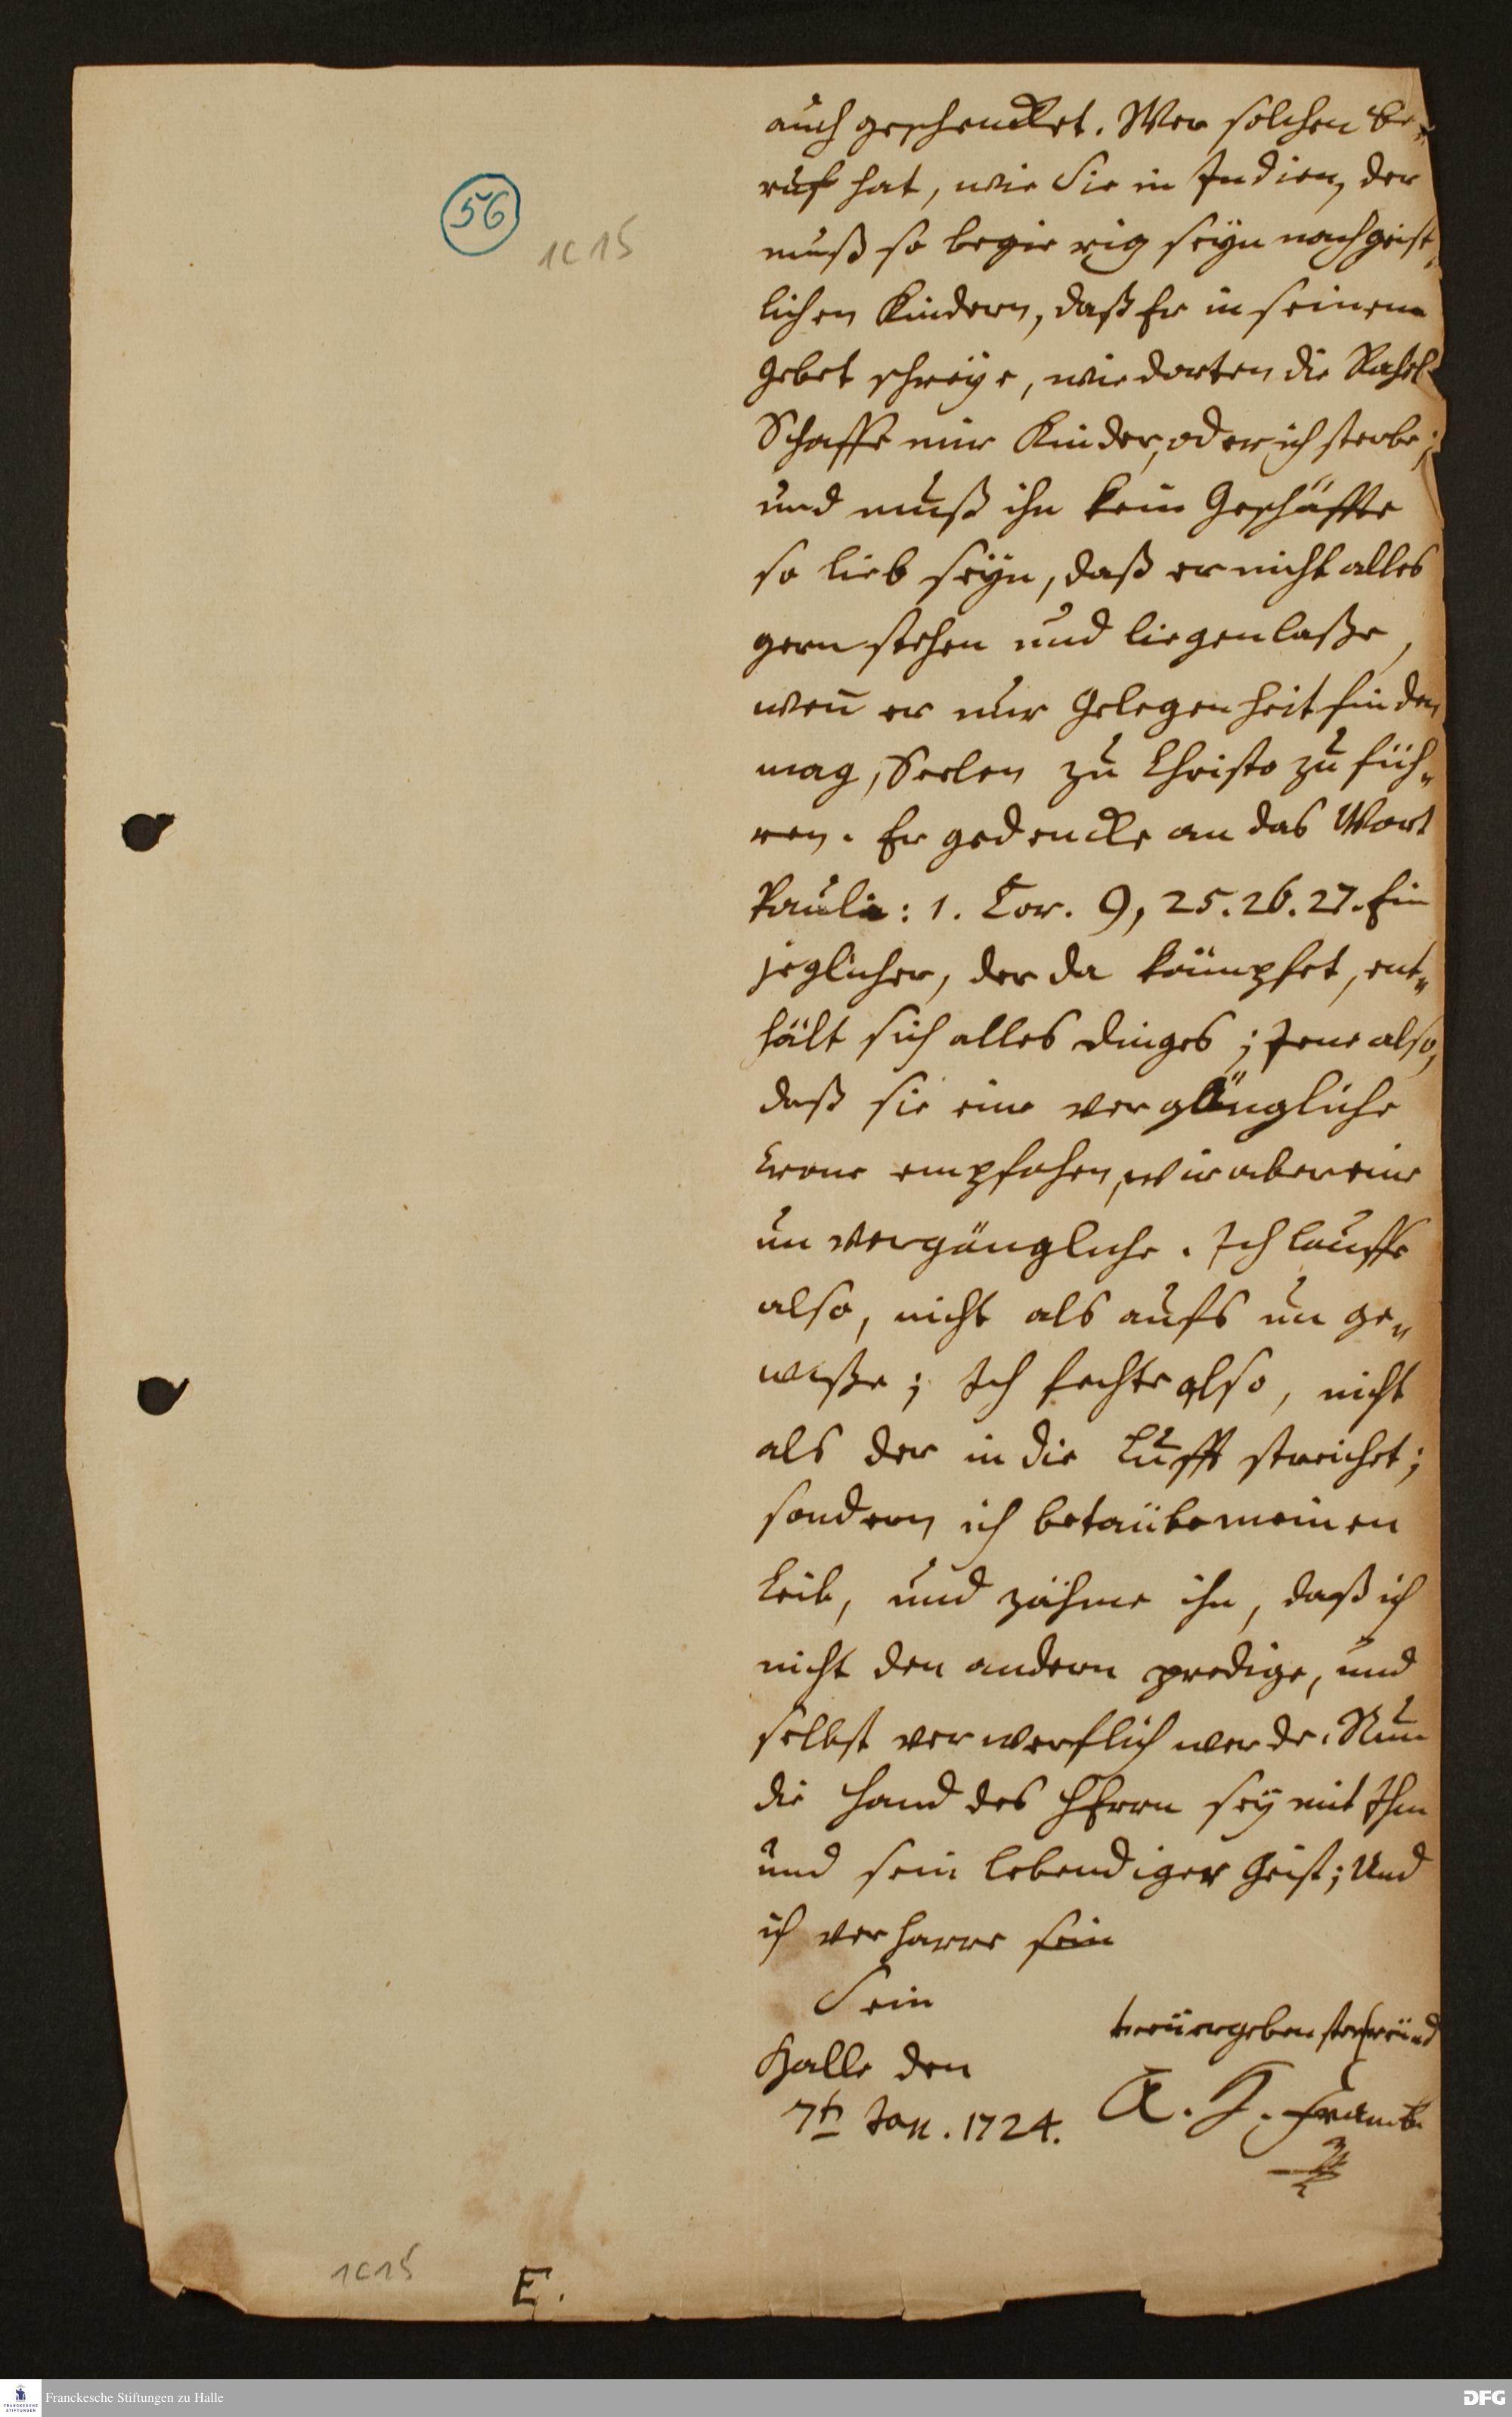 56
1C15
auch geschencket. Wer solchen Be-
ruf hat, wie Sie in Indien, der
muß so begierig seyn nach geist-
lichen Kindern, daß Er in seinem
Gebet schreye, wie dorten die Rahel:
Schaffe mir Kinder, oder ich sterbe;
und muß ihn kein Geschäffte
so lieb seyn, daß er nicht alles
gern stehen und liegen laße,
weñ er nur Gelegenheit finden
mag, Seelen zu Christo zu füh-
ren. Er gedencke an das Wort
Pauli: 1. Cor. 9, 25. 26. 27. Ein
jeglicher, der da kämpfet, ent-
hält sich alles dinges; Jene also,
daß sie eine vergängliche
Crone empfahen, wir aber eine
unvergängliche. Ich lauffe
also, nicht als aufs unge-
wiße; Ich fechte also, nicht
als der in die Lufft streichet;
sondern ich betäube meinen
Leib, und zähme ihn, daß ich
nicht den andern predige, und
selbst verwerflich werde. Nun
die Hand des HErrn sey mit Ihm
und sein lebendiger Geist; Und
ich verharre sein
Sein
treüergebenster freünd
Halle den
7t Jan. 1724.
A. H. Francke
1C15
E.
Franckesche Stiftungen zu Halle
FRANCKESCHE STIFTUNGEN
DFG